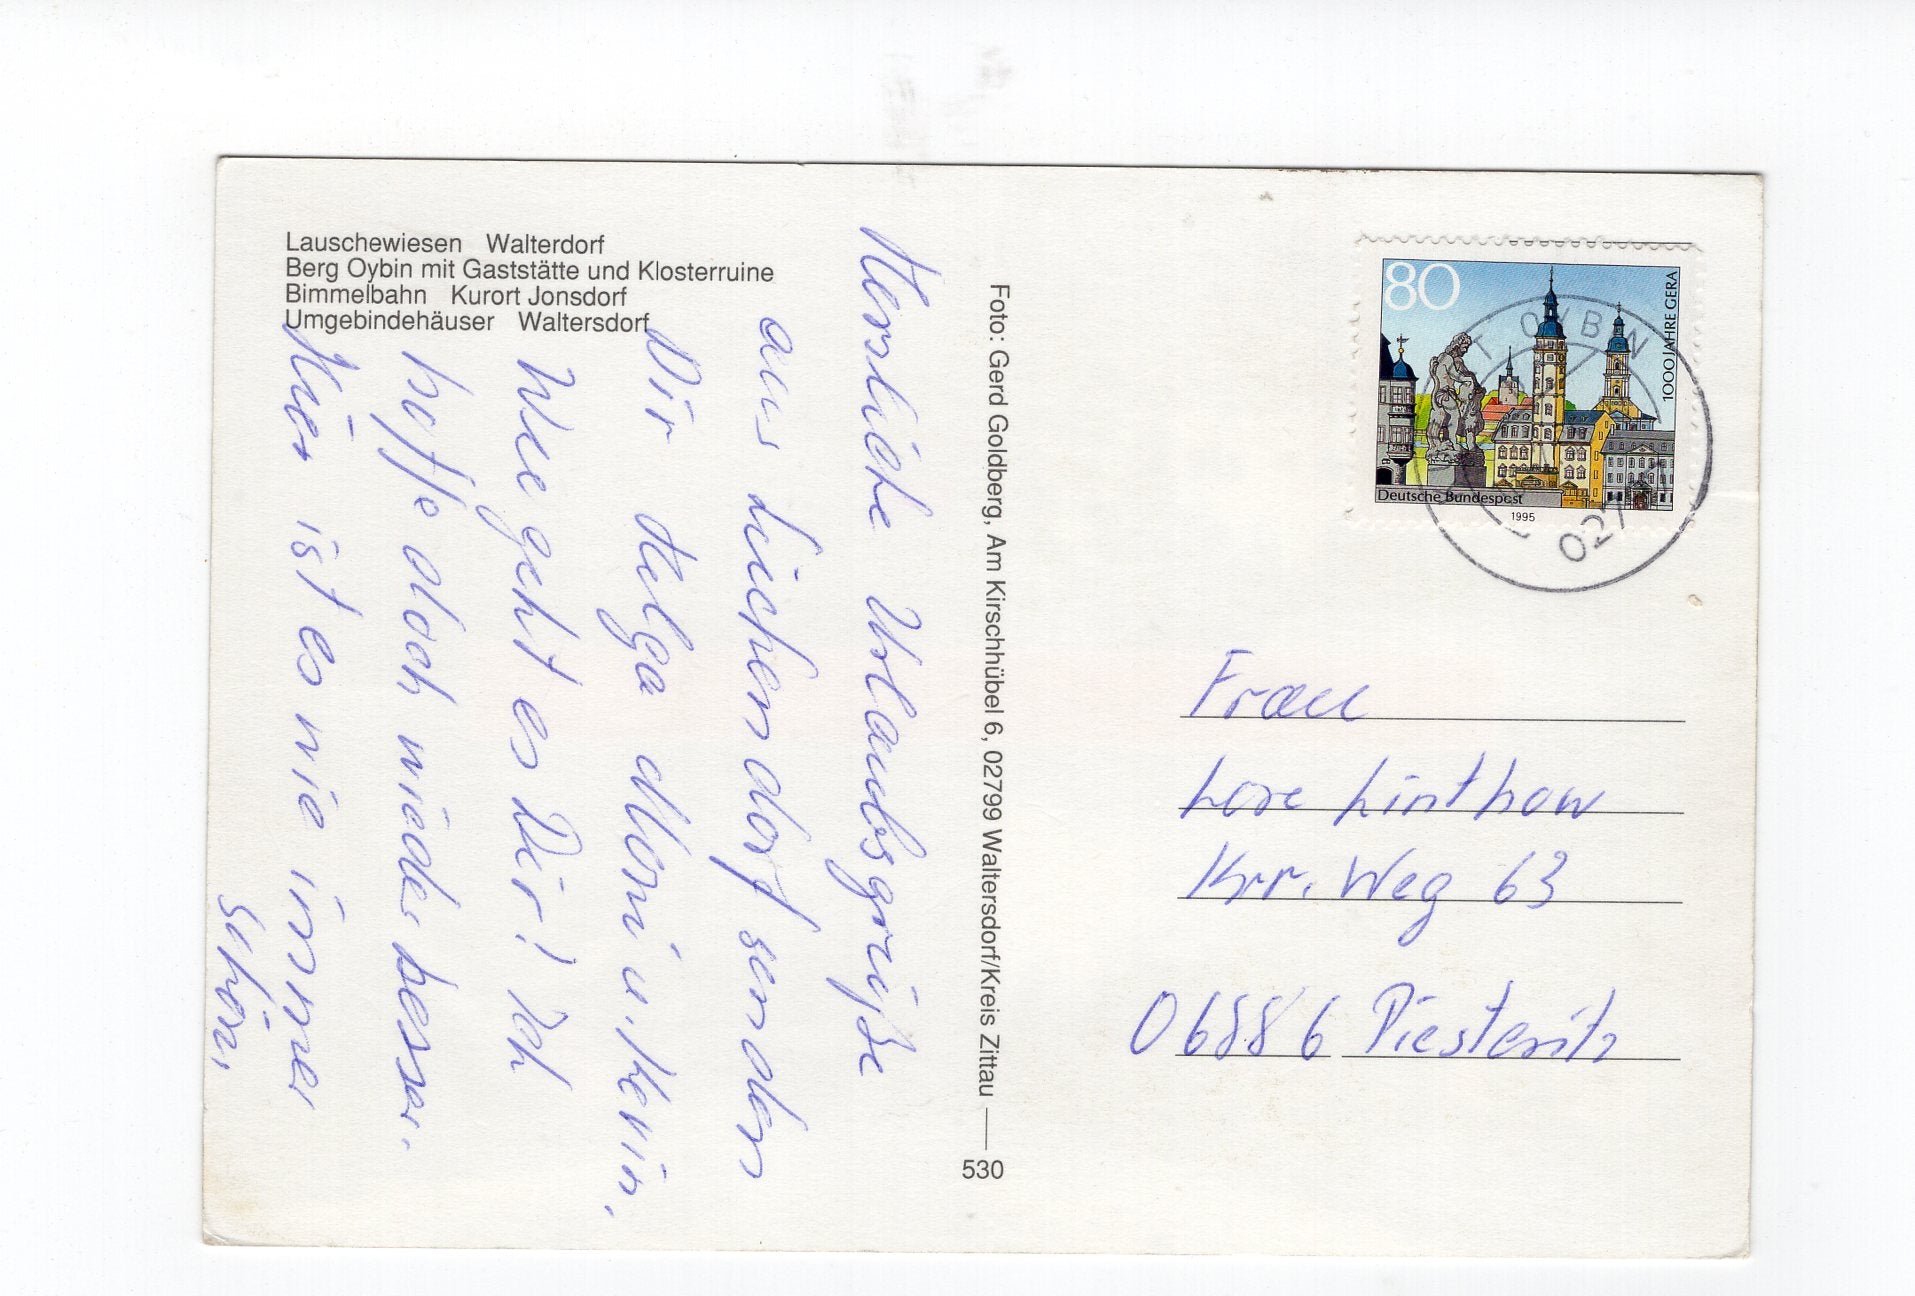 Lauschewiesen Walterdorf
Berg Oybin mit Gaststätte und Klosterruine
Bimmelbahn Kurort Jonsdorf
Umgebindehäuser Waltersdorf
Herzliche Urlaubsgrüße
aus Lückendorf senden
Dir Helga Moni u. Kevin.
Wie geht es Dir! Ich
hoffe doch wieder besser.
Hier ist es wie immer
schön.
Foto: Gerd Goldberg, Am Kirschhübel 6, 02799 Waltersdorf/Kreis Zittau
530
80
1000 JAHRE GERA
Deutsche Bundespost
1995
OYBIN
027
Frau
Lore Linthow
Krr. Weg 63
06886 Piesteritz